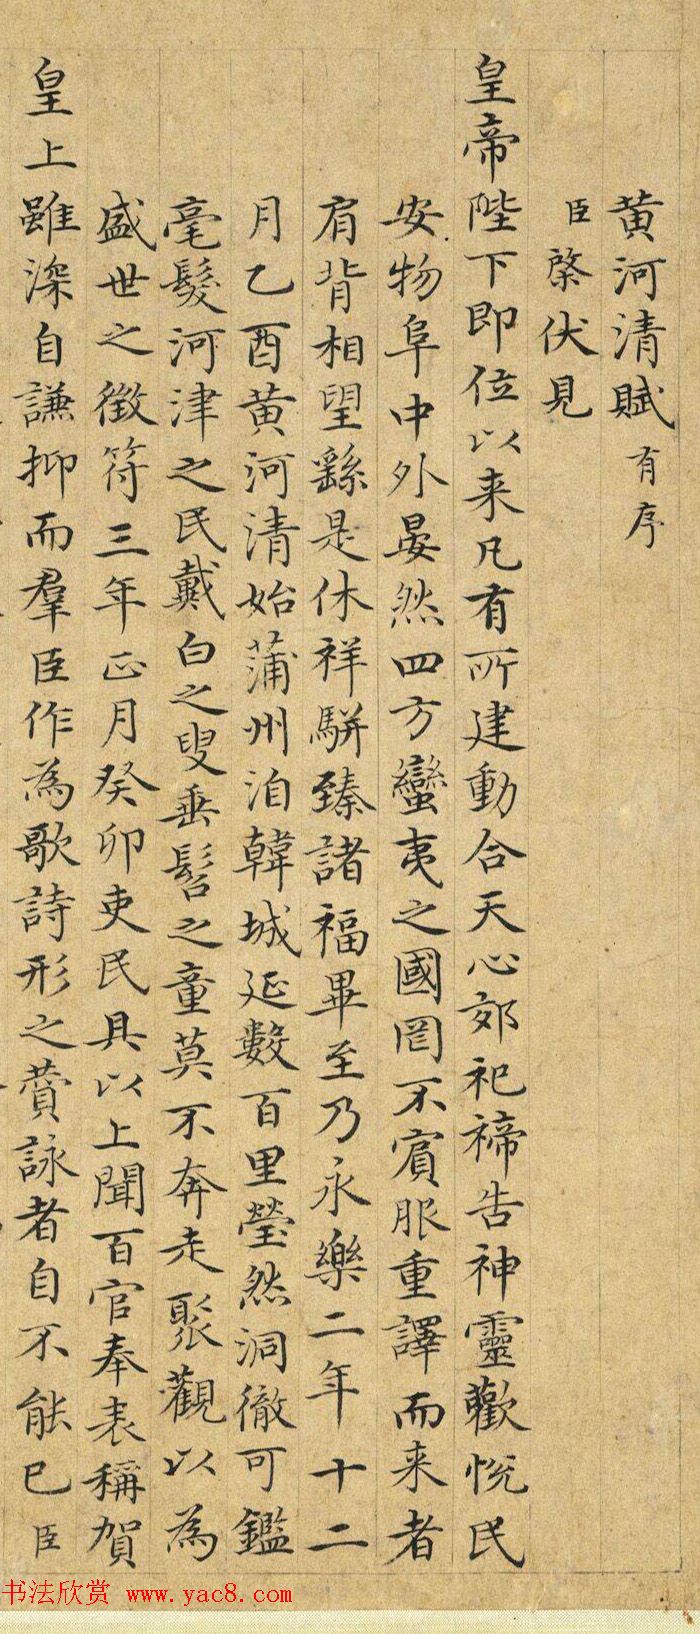 黄河清賦有序
臣棨伏見
皇帝陛下即位以来凡有所建動合天心郊祀禘告神靈歡悅民
安物阜中外晏然四方蠻夷之國罔不賓服重譯而来者
肩背相望繇是休祥騈臻諸福畢至乃永樂二年十二
月乙酉黄河清始蒲州洎韓城延數百里瑩然洞徹可鑑
毫髮河津之民戴白之叟垂髫之童莫不奔走聚觀以為
盛世之徵符三年正月癸卯吏民具以上聞百官奉表稱賀
皇上雖深自謙抑而羣臣作為歌詩形之賛詠者自不能已臣
书法欣赏 www.yac8.com